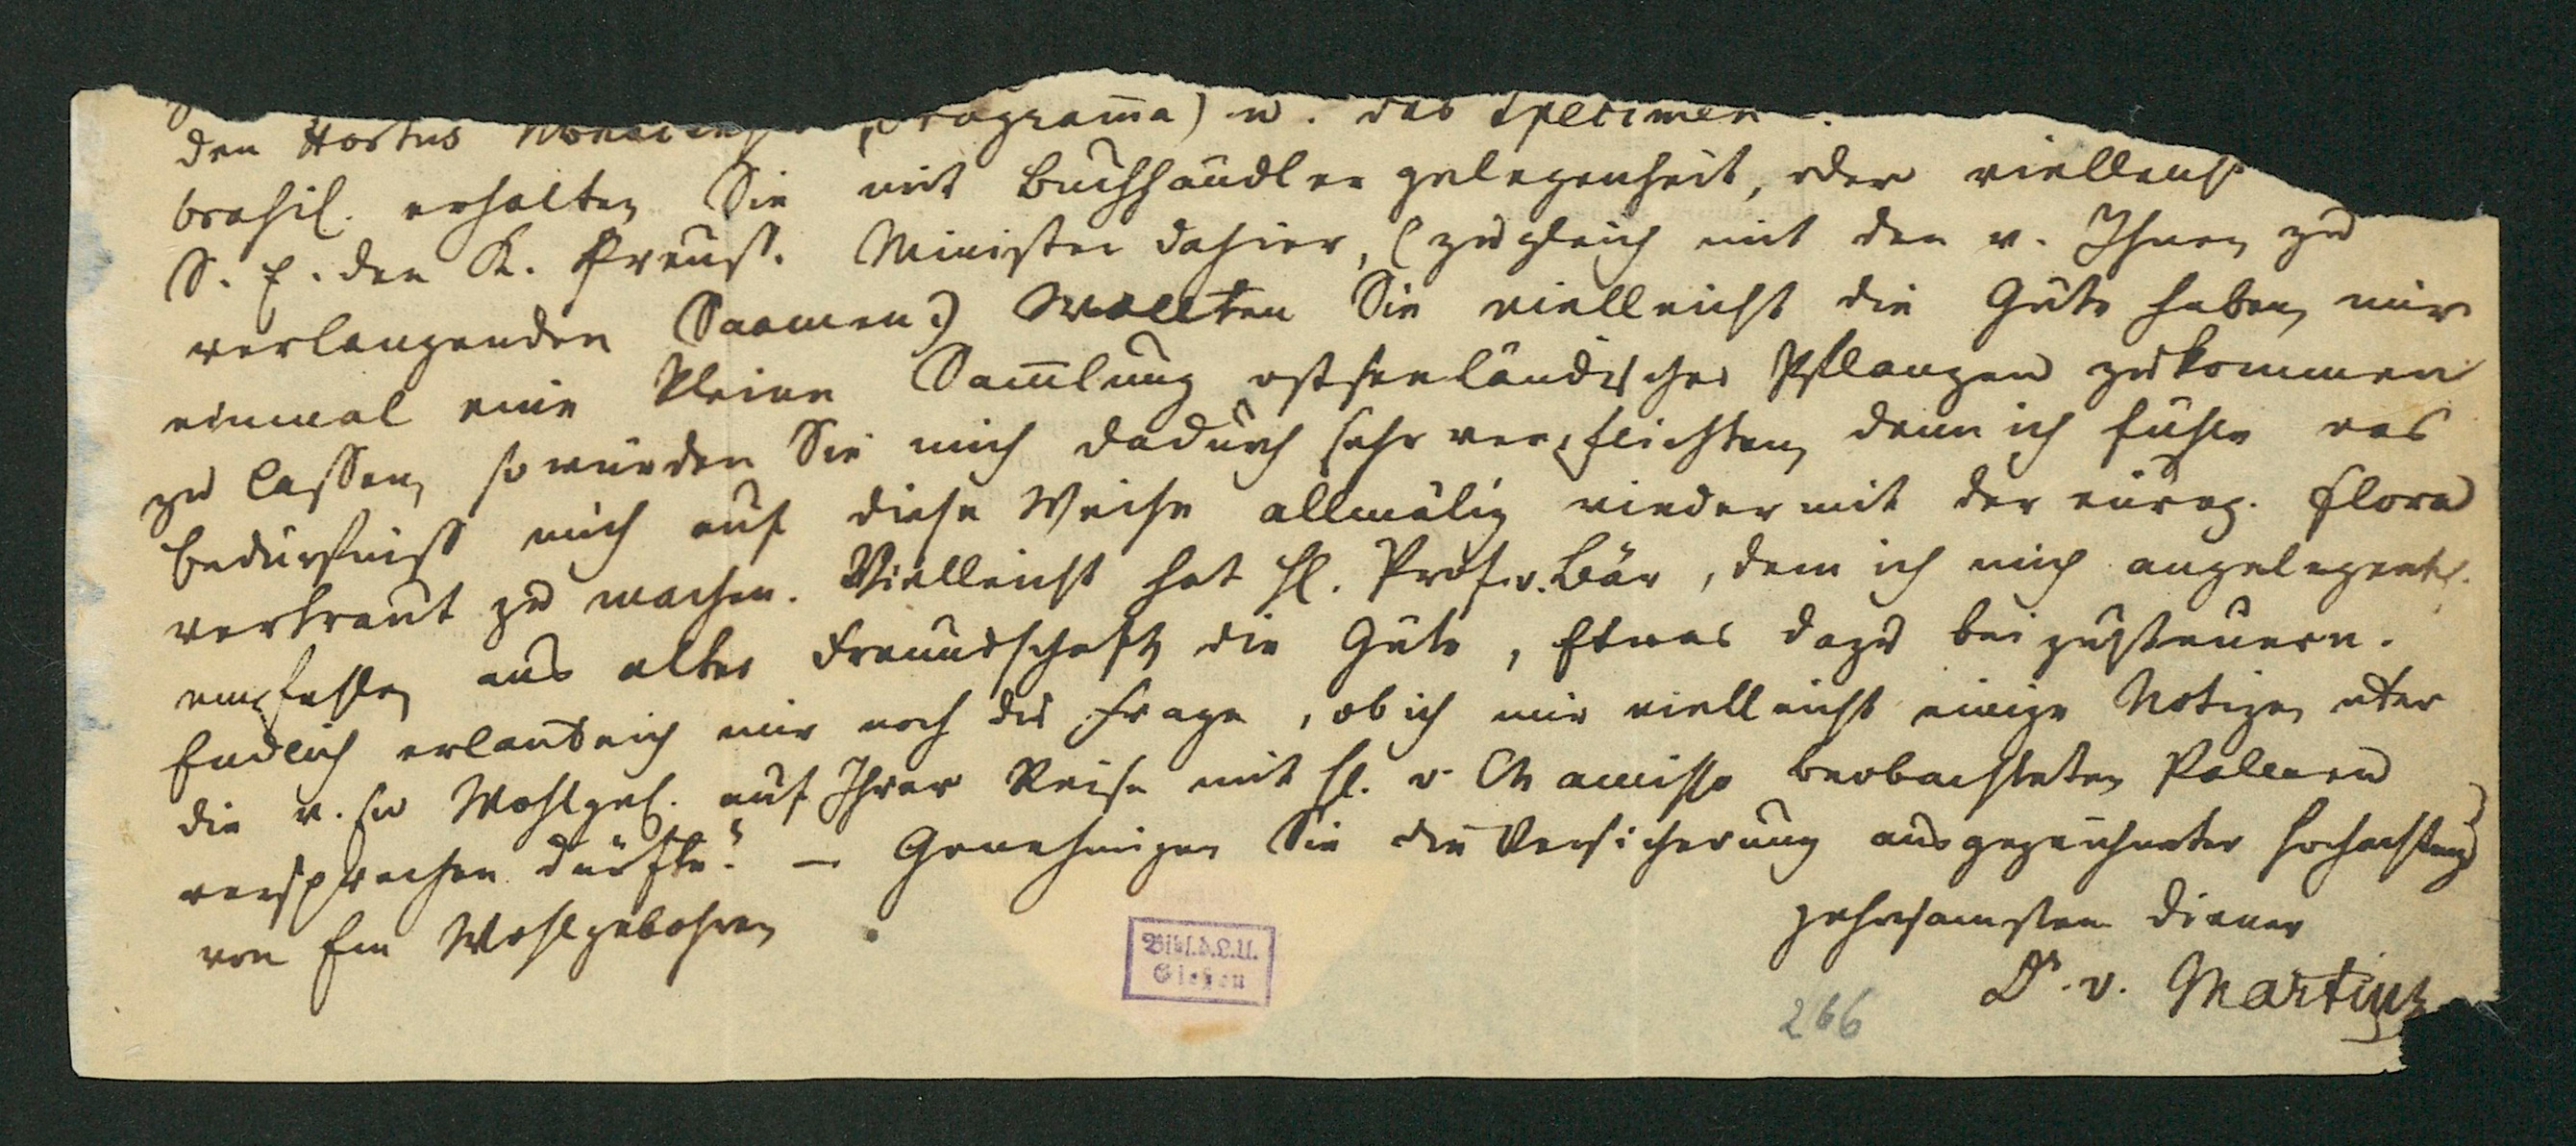 den Hortus Monacensis (Programma) u. das Specimen
brasil. erhalten Sie mit Buchhändlergelegenheit, oder vielleicht
S. E. den K. Preuss. Minister dahier, (zugleich mit den v. Ihnen zu
verlangenden Saamen.) Wollten Sie vielleicht die Güte haben, mir
einmal eine kleine Sam̄lung ostseeländischer Pflanzen zukommen
zu lassen, so würden Sie mich dadurch sehr verpflichten, denn ich fühle das
Bedürfniss mich auf diese Weise allmälig wieder mit der europ. Flora
vertraut zu machen. Vielleicht hat H. Prof. v. Bär, dem ich mich angelegentl.
empfehle, aus alter Freundschaft, die Güte, Etwas dazu beizusteuern.
Endlich erlaube ich mir noch die Frage, ob ich mir vielleicht einige Notizen über
die v. Ew Wohlgeb. auf Ihrer Reise mit H. v. Chamisso beobachteten Palmen
versprechen dürfte? — Genehmigen Sie die Versicherung ausgezeichneter Hochachtung
von Ew Wohlgebohren
gehorsamsten Diener
Dr. v. Martius
Bibl. d. L. U.
Gießen
266